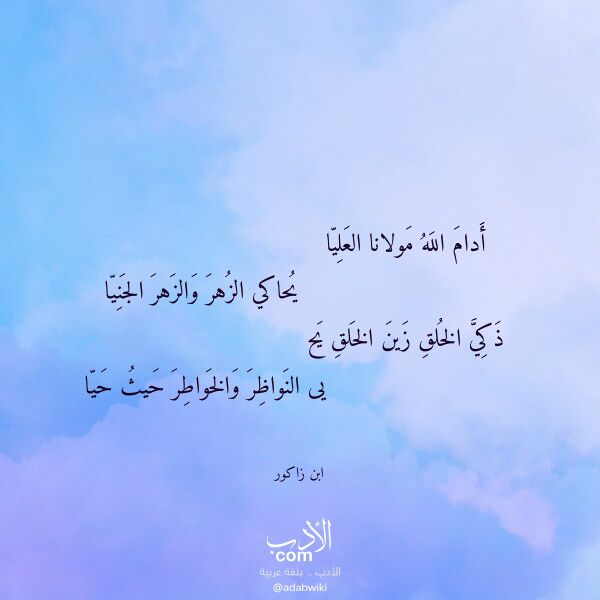 أَدامَ اللَهُ مَولانا العَلِيّا
يُحاكي الزُهرَ وَالزَهرَ الجَنِيّا
ذَكِيَّ الخُلقِ زَينَ الخَلقِ يَح
يى النَواظِرَ وَالخَواطِرَ حَيثُ حَيّا
ابن زاكور
الأدب
com
الأدب .. بلغة عربية
@adabwiki